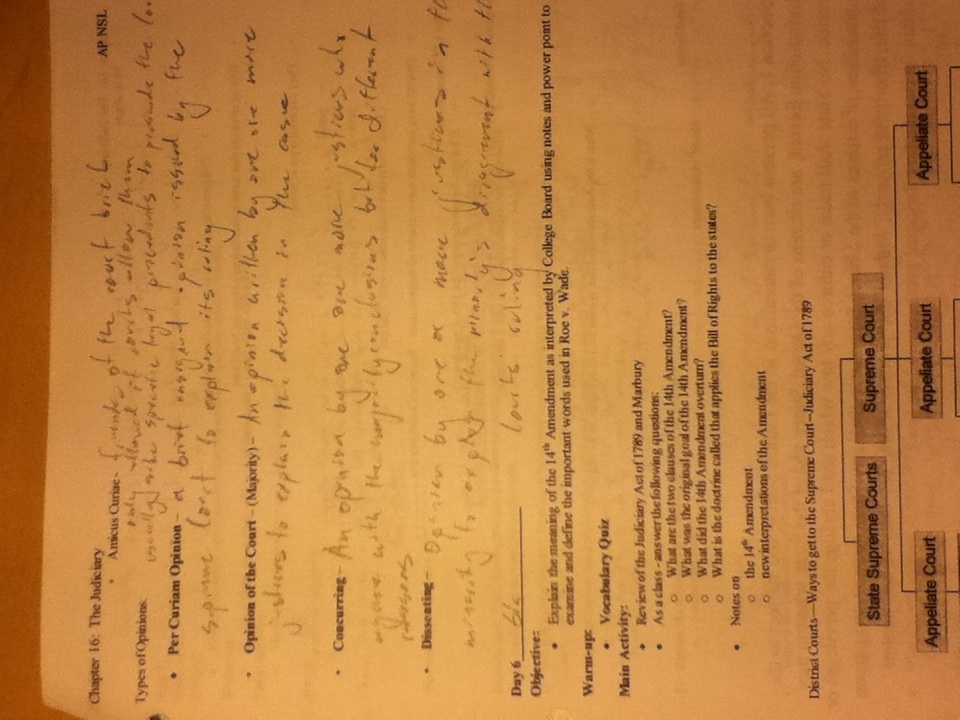 Chapter 16: The Judiciary
AP NSL
Amicus Curiae - friends of the court brief
only allowed if courts allow them
Types of Opinions:
usually specific legal to persuade the
Per Curiam Opinion - a brief unsigned opinion issued by the
supreme Court to explain its ruling
Opinion of the Court – (Majority) – An opinion written by one ore more
justices to explain the decision in the case
Concurring – An opinion by one ore more justices who
agree with the majority conclusions but for different
reasons
Dissenting – Opinion by one or more justices in th
minority to explain the minority's disagreement with th
Court's ruling
Day 6
Objective:
Explain the meaning of the 14th Amendment as interpreted by College Board using notes and power point to
examine and define the important words used in Roe v. Wade.
Warm-up:
Vocabulary Quiz
Main Activity:
Review of the Judiciary Act of 1789 and Marbury
As a class - answer the following questions:
What are the two clauses of the 14th Amendment?
What was the original goal of the 14th Amendment?
What did the 14th Amendment overturn?
What is the doctrine called that applies the Bill of Rights to the states?
Notes on
the 14th Amendment
new interpretations of the Amendment
District Courts—Ways to get to the Supreme Court–Judiciary Act of 1789
State Supreme Courts
Supreme Court
Appellate Court
Appellate Court
Appellate Court